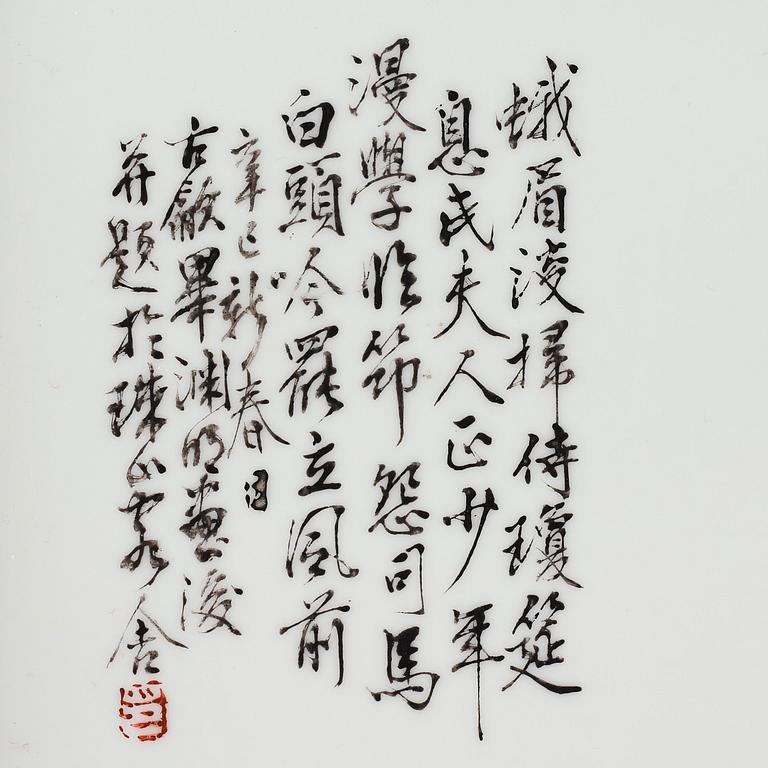 蛾眉掃侍瓊筵
息氏夫人正少年
漫學臨筇怨司馬
白頭吟罷立風前
辛巳新春
古歙畢淵明畫後
并題於珠山客舍